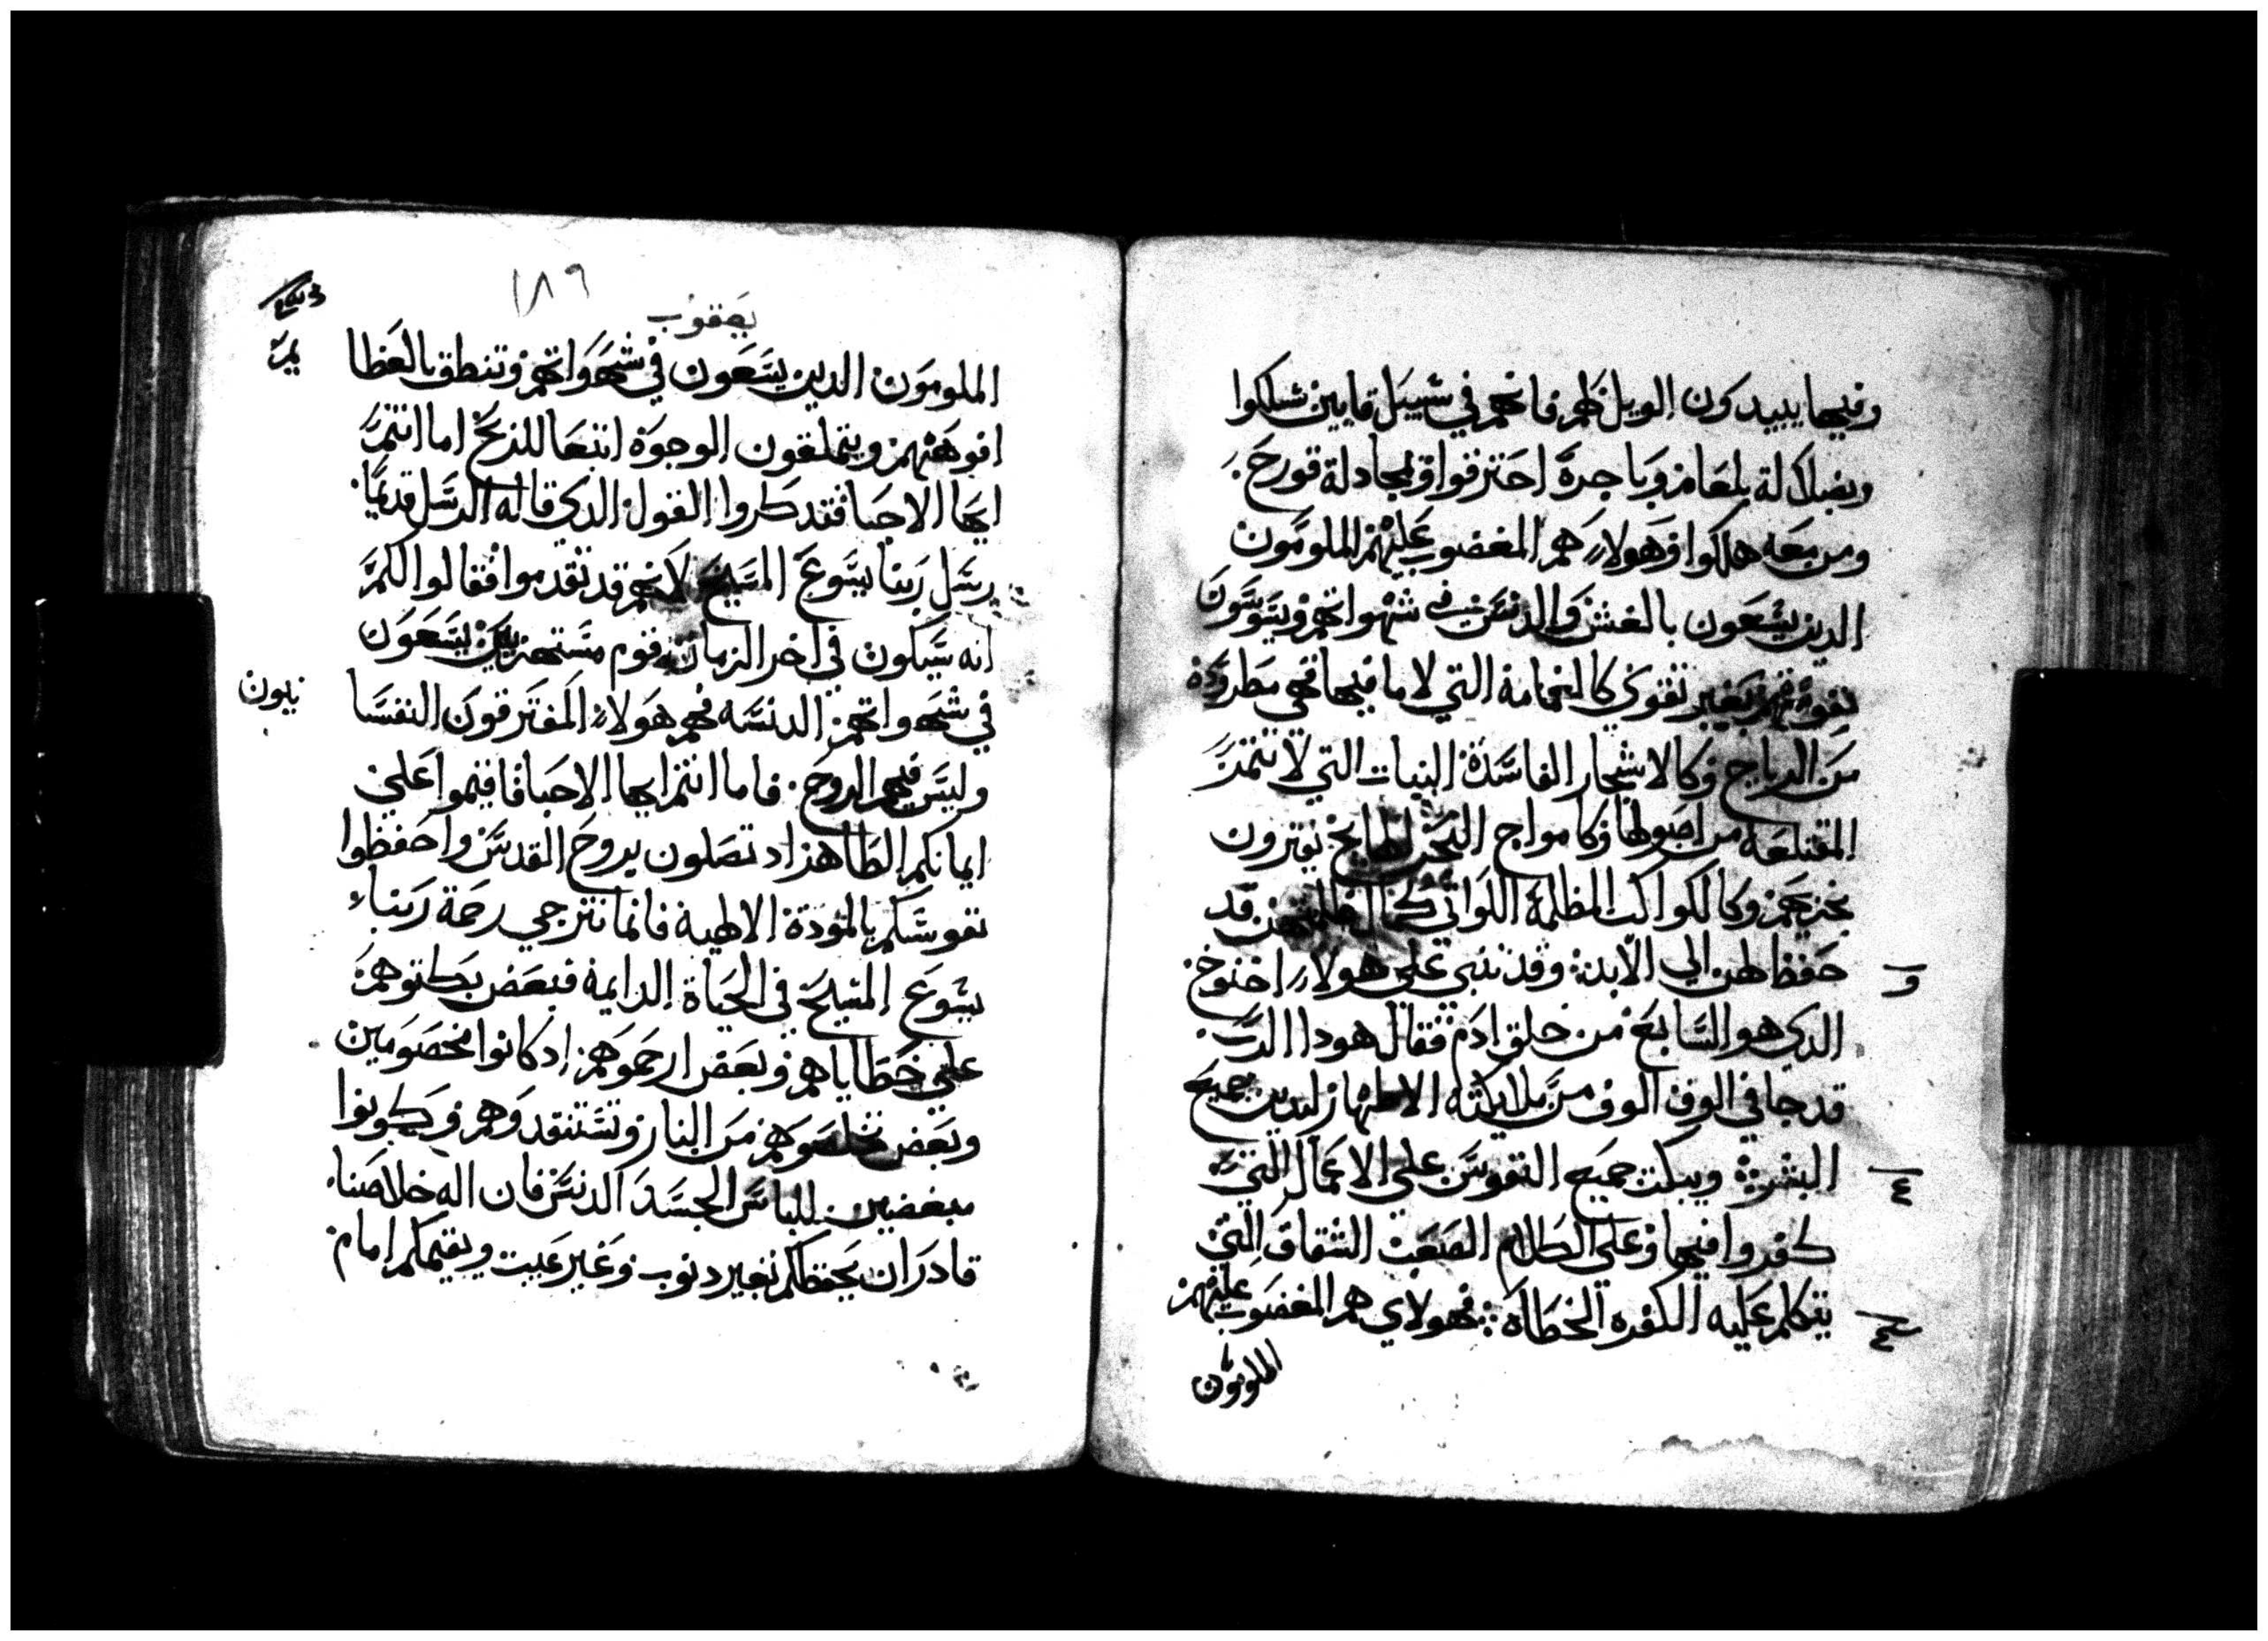 وفيها يبيدكون الويل لهم فانهم في سبيل قايين سلكوا
وبضلالة بلعام وباجرة احترقوا وبمجادلة قورح
ومن معه هلكوا فهولاء هم المغضوب عليهم الملومون
الدين يسعون بالغش والدنس في شهواتهم ويسوسون
نفوسهم بغير تقوي كالغمامة التي لا ما فيها فهي مطرودة
من الرياح وكالاشجار الفاسدة النبات التي لا تتمر
المقتلعة من اصولها وكامواج البحر الهايج يفترون
بخزيهم وكالكواكب المظلمة اللواتي قد
حفظ لهن الي الابد وقد تنبي علي هولاء اخنوخ
الدي هو السابع من خلق ادم فقال هودا الرب
قد جا في الوف الوف من ملايكته الاطهار ليدين جميع
البشر ويبكت جميع النفوس علي الاعمال التي
كفروا فيها وعلي الكلام الصعب الشقاق التي
يتكلم عليه الكفره الخطاة فهولاي هم المغضوب عليهم
الملومون
١٨٩
يعقوب
الملومون الدين يسعون في شهواتهم وتنطق بالعظا
يم
افوههم ويتملقون الوجوه ابتغا للربح اما انتم
ايها الاحبا فتدكروا القول الدي قاله الرسل قديما
رسل ربنا يسوع المسيح لانهم قد تقدموا فقالوا لكم
انه سيكون في اخر الزمان قوم مستهزيين يسعون
في شهواتهم الدنسه فهم هولاء المفترقون النفسا
نيون
وليس فيهم الروح فاما انتم ايها الاحبا فاقيموا علي
ايمانكم الطاهر اد تصلون بروح القدس واحفظوا
نفوسكم بالمودة الالهية فانما نترجي رحمة ربنا
يسوع المسيح في الحياة الدايمة فبعض بكتوهم
علي خطاياهم وبعض ارحموهم ادكانوا مخصومين
وبعض خلصوهم من النار وتستنقدوهم وكونوا
مبغضين للباس الجسد الدنس فان اله خلاصنا
قادر ان يحفظكم بغير دنوب وغير عيب ويقيمكم امام